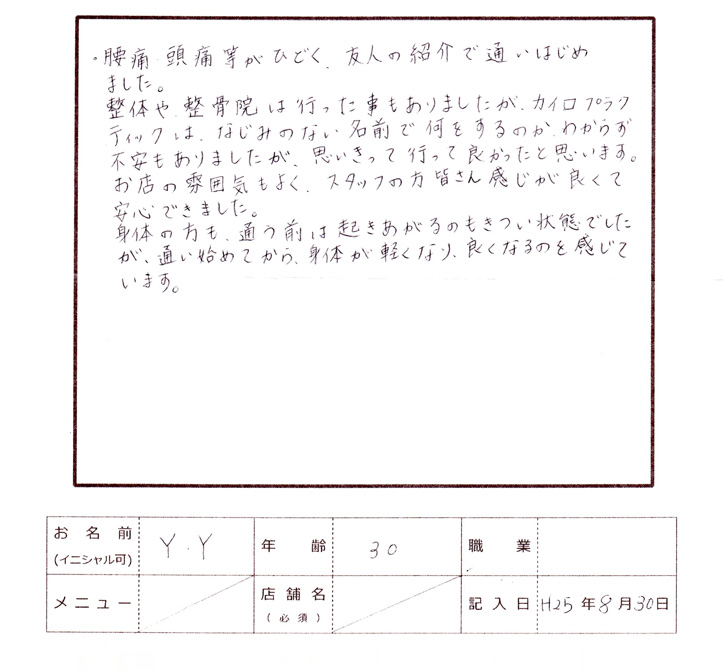 ・腰痛 頭痛等がひどく、友人の紹介で通いはじめ
ました。
整体や、整骨院は行った事もありましたが、カイロプラク
ティックは、なじみのない名前で何をするのか、わからず
不安もありましたが、思いきって行って良かったと思います。
お店の雰囲気もよく、スタッフの方皆さん感じが良くて
安心できました。
身体の方も、通う前は起きあがるのもきつい状態でした
が、通い始めてから、身体が軽くなり、良くなるのを感じて
います。
お名前 (イニシャル可) Y.Y 年齢 30 職業
メニュー 店舗名 (必須) 記入日 H25年8月30日